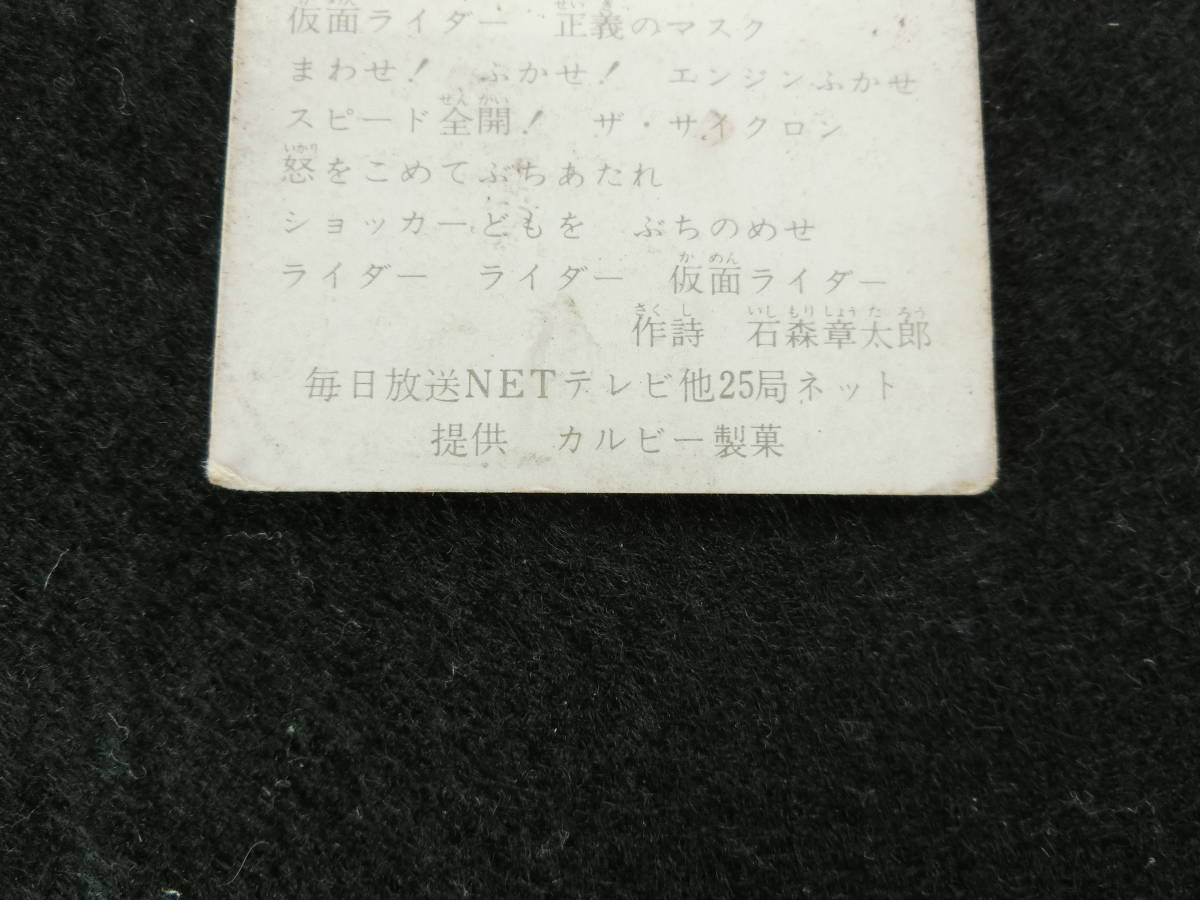 仮面ライダー　正義のマスク
まわせ！　ふかせ！　エンジンふかせ
スピード全開！　ザ・サイクロン
怒をこめてぶちあたれ
ショッカーどもを　ぶちのめせ
ライダー　ライダー　仮面ライダー
作詩　石森章太郎
毎日放送NETテレビ他25局ネット
提供　カルビー製菓